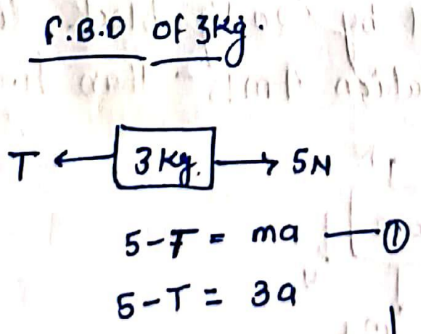 F.B.D of 3kg.
T ← 3 kg. → 5N
5-T = ma — ①
5-T = 3a